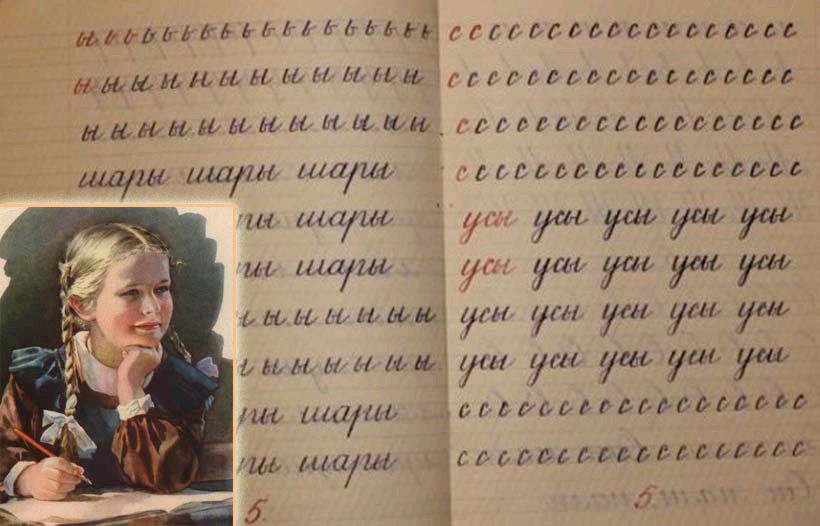 ы ь ь ь ь ь ь ь ь ь ь ь ь ь ь ь ь ь ь
ы ы ы ы ы ы ы ы ы ы ы ы
ы ы ы ы ы ы ы ы ы ы ы ы
шары шары шары
ры шары
ры шары
ы ы ы ы ы ы ы
ы ы ы ы ы ы ы
ры шары
ры шары
5.
с с с с с с с с с с с с с с с с с с с
с с с с с с с с с с с с с с с с с с с
с с с с с с с с с с с с с с с с с с с
с с с с с с с с с с с с с с с с с с с
усы усы усы усы усы
усы усы усы усы усы
усы усы усы усы усы
усы усы усы усы усы
с с с с с с с с с с с с с с с с с с
с с с с с с с с с с с с с с с с с с
5.